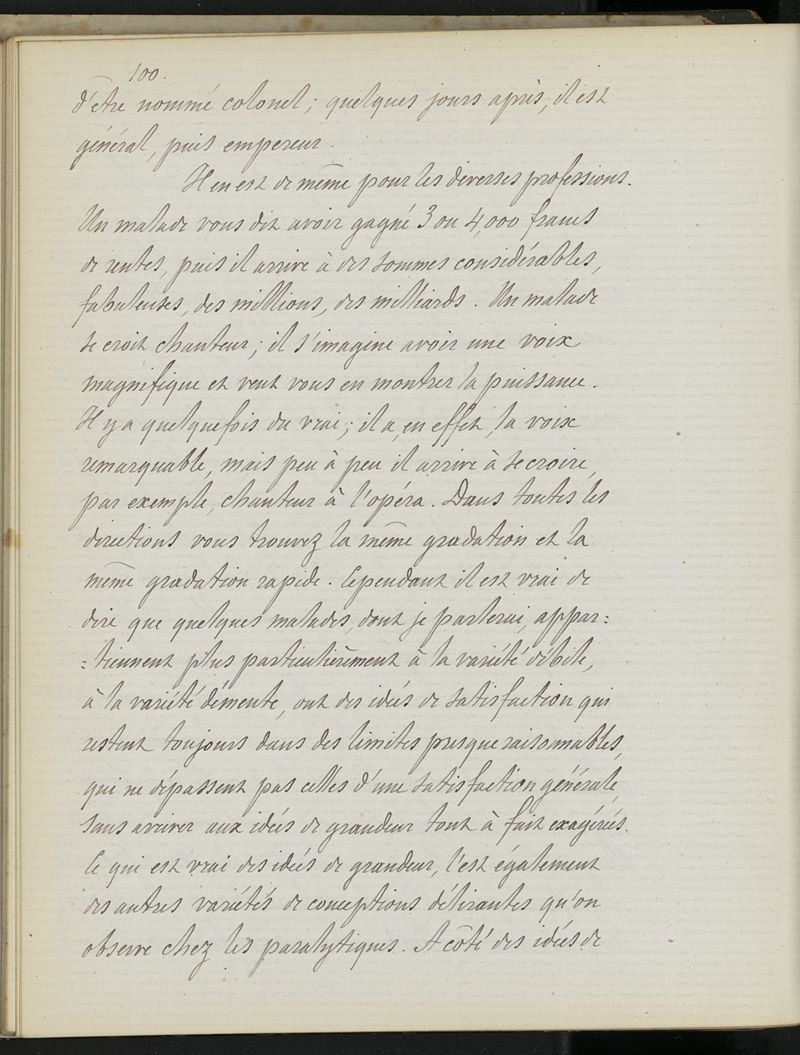 100.
d'être nommé colonel ; quelques jours après, il est
général, puis empereur.
Il en est de même pour les diverses professions.
Un malade vous dit avoir gagné 3 ou 4,000 francs
de rentes, puis il arrive à des sommes considérables,
fabuleuses, des millions, des milliards. Un malade
se croit chanteur ; il s'imagine avoir une voix
magnifique et veut vous en montrer la puissance.
Il y a quelquefois du vrai ; il a, en effet, la voix
remarquable, mais peu à peu il arrive à se croire,
par exemple, chanteur à l'opéra. Dans toutes les
directions vous trouvez la même gradation et la
même gradation rapide. Cependant il est vrai de
dire que quelques malades, dont je parlerai, appar=
=tiennent plus particulièrement à la variété débile,
à la variété démente, ont des idées de satisfaction qui
restent toujours dans des limites presque raisonnables,
qui ne dépassent pas celles d'une satisfaction générale,
sans arriver aux idées de grandeur tout à fait exagérées.
Ce qui est vrai des idées de grandeur, l'est également
des autres variétés de conceptions délirantes qu'on
observe chez les paralytiques. A côté des idées de